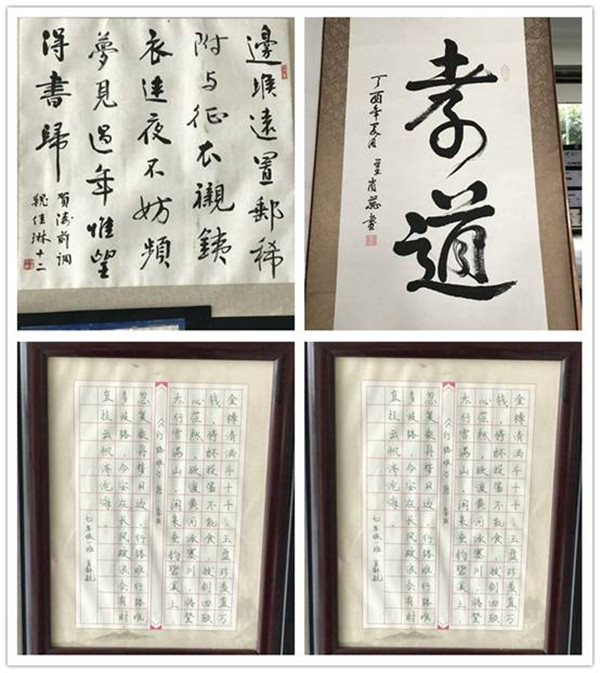 邊堠遠置郵稀
附與征衣襯鐵
衣連夜不妨頻
夢見過年惟望
得書歸
賀鑄前調
魏佳琳十二
孝道
丁酉年夏月
金樽清酒斗十千,玉盘珍羞直万
钱。停杯投箸不能食,拔剑四顾
心茫然。欲渡黄河冰塞川,将登
太行雪满山。闲来垂钓碧溪上,
《行路难》 李白
忽复乘舟梦日边。行路难行路难
多歧路,今安在长风破浪会有时
直挂云帆济沧海。
七年级一班
金樽清酒斗十千,玉盘珍羞直万
钱。停杯投箸不能食,拔剑四顾
心茫然。欲渡黄河冰塞川,将登
太行雪满山。闲来垂钓碧溪上,
《行路难》 李白
忽复乘舟梦日边。行路难行路难
多歧路,今安在长风破浪会有时
直挂云帆济沧海。
七年级一班